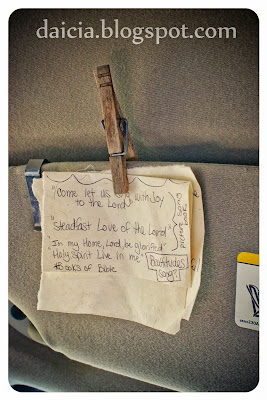 daicia.blogspot.com
"Come let us sing with Joy
to the Lord"
"Steadfast Love of the Lord"
"In my Home, Lord, be glorified"
Holy Spirit Live in me"
Books of Bible
Beatitudes
Song?
song
book